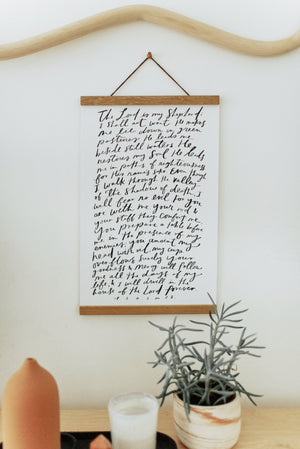 The Lord is my Shepherd,
I shall not want. He makes
me lie down in green
pastures. He leads me
beside still waters He
restores my Soul. He leads
me in paths of righteousness
for His name's sake. Even though
I walk through the valley
of the shadow of death, I
will fear no evil for you
are with me your rod &
your staff they comfort me.
You prepare a table before
me in the presence of my
enemies; you anoint my
head with oil my cup
overflows. Surely your
goodness & mercy will follow
me all the days of my
life, & I will dwell in the
house of the Lord forever.